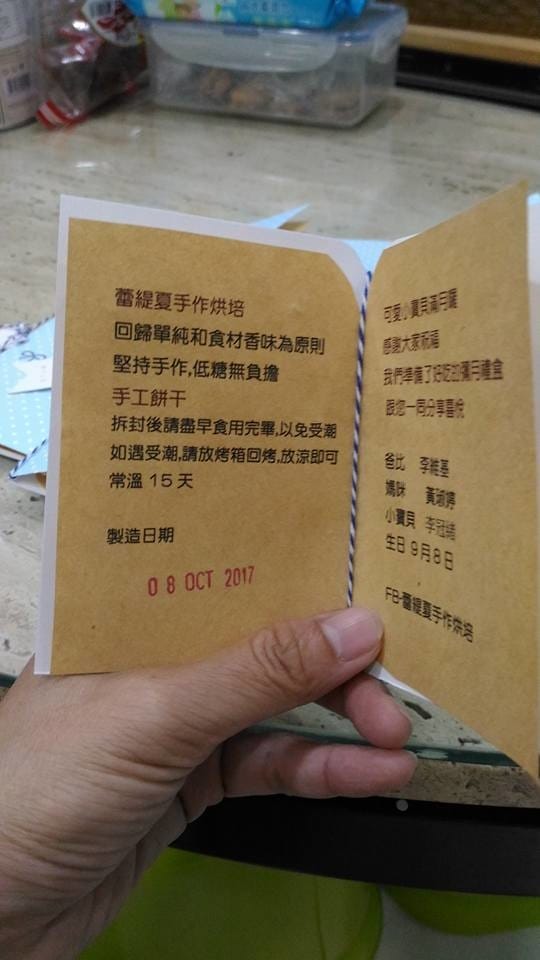 蕾緹夏手作烘培
回歸單純和食材香味為原則
堅持手作,低糖無負擔
手工餅干
拆封後請盡早食用完畢,以免受潮
如遇受潮,請放烤箱回烤,放涼即可
常溫 15 天
製造日期
08 OCT 2017
可愛小寶貝滿月囉
感謝大家祝福
我們準備了好吃的彌月禮盒
跟您一同分享喜悅
爸比 李維基
媽咪 黃淑婷
小寶貝 李冠緒
生日 9月8日
FB-蕾緹夏手作烘培